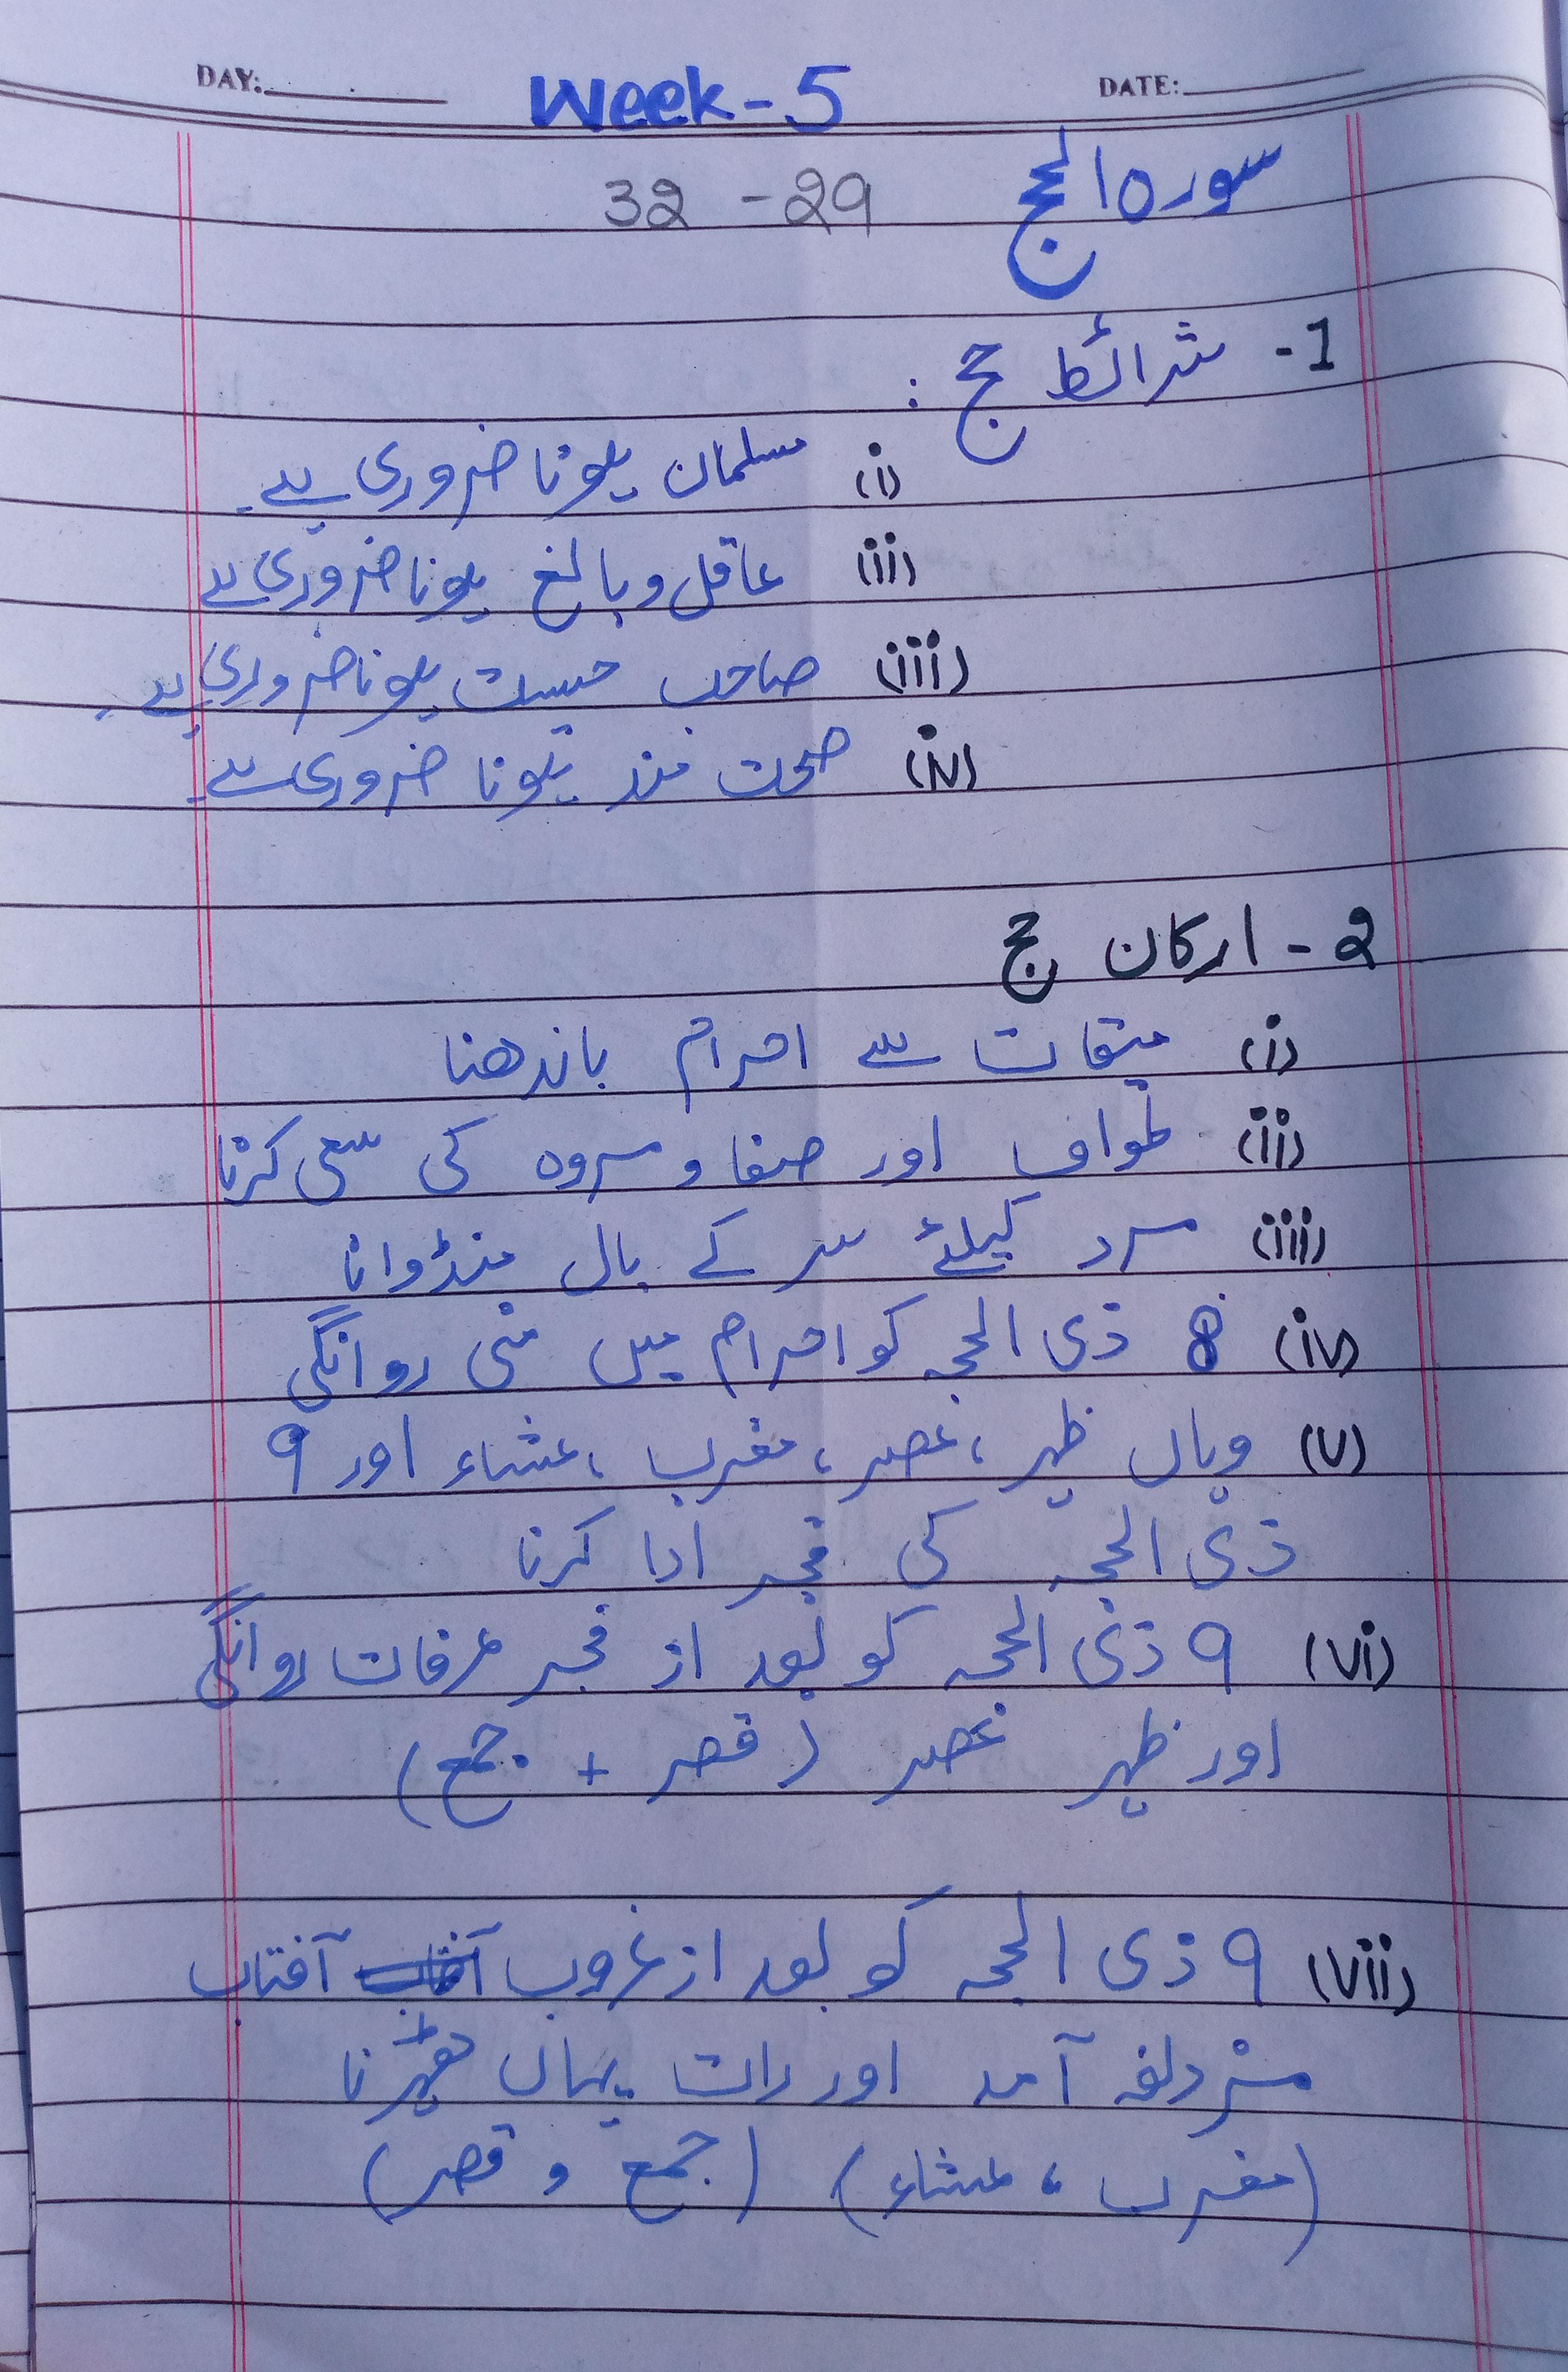 DAY: Week-5 DATE:
سورہ الحج 29 - 32
1- شرائط حج :
(i) مسلمان ہونا ضروری ہے۔
(ii) عاقل و بالغ ہونا ضروری ہے
(iii) صاحب حیثیت ہونا ضروری ہے۔
(iv) صحت مند ہونا ضروری ہے۔
2- ارکان حج
(i) میقات سے احرام باندھنا
(ii) طواف اور صفا و مروہ کی سعی کرنا
(iii) مرد کیلئے سر کے بال منڈوانا
(iv) 8 ذی الحجہ کو احرام میں منی روانگی
(v) وہاں ظہر ، عصر ، مغرب ، عشاء اور 9
ذی الحجہ کی فجر ادا کرنا
(vi) 9 ذی الحجہ کو بعد از فجر عرفات روانگی
اور ظہر عصر (قصر + جمع)
(vii) 9 ذی الحجہ کو بعد از غروب آفتاب
مزدلفہ آمد اور رات یہاں ٹھہرنا
(مغرب ، عشاء) (جمع و قصر)